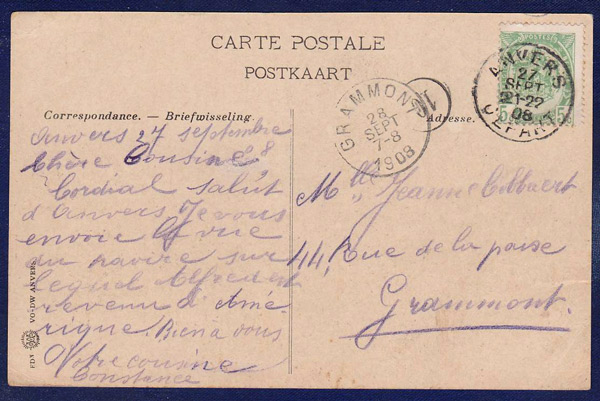 CARTE POSTALE
POSTKAART
Correspondance. — Briefwisseling.
Adresse.
ANVERS
27
SEPT
21-22
08
DEPART
GRAMMONT
28
SEPT
7-8
1908
Anvers 27 septembre
08
Chère Cousine
Cordial salut
d'Anvers Je vous
envoie la vue
du navire sur
lequel Alfred est
revenu d'Amé
rique. Bien à vous
Votre cousine
Constance
Mlle Jeanne
44, Rue de la
Grammont.
VO-DW ANVERS